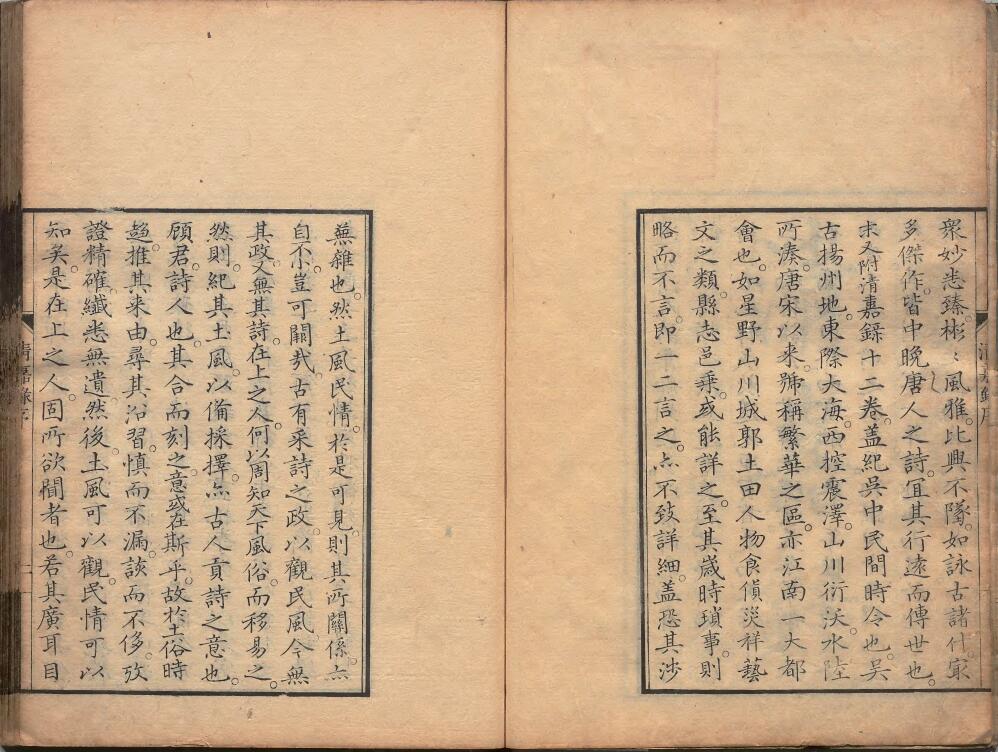 衆妙悉臻彬〻風雅比興不墜如詠古諸什㝡
多傑作皆中晚唐人之詩冝其行遠而傳世也
末又附清嘉錄十二卷盖紀吳中民間時令也吳
古揚州地東際大海西控震澤山川衍沃水陸
所湊唐宋以來號稱繁華之區亦江南一大都
會也如星野山川城郭土田人物食貨災祥藝
文之類縣志邑乗或能詳之至其嵗時瑣事則
略而不言即一二言之亦不致詳細盖恐其涉
蕪雜也然土風民情於是可見則其所關係亦
自不小豈可闕㢤古有采詩之政以觀民風今無
其政又無其詩在上之人何以周知天下風俗而移易之
然則紀其土風以俻採擇亦古人貢詩之意也
顧君詩人也其合而刻之意或在斯乎故於土俗時
趍推其来由尋其沿習慎而不漏該而不侈攷
證精確纖悉無遺然後土風可以觀民情可以
知矣是在上之人固所欲聞者也若其廣耳目
清嘉錄序
清嘉錄序
二